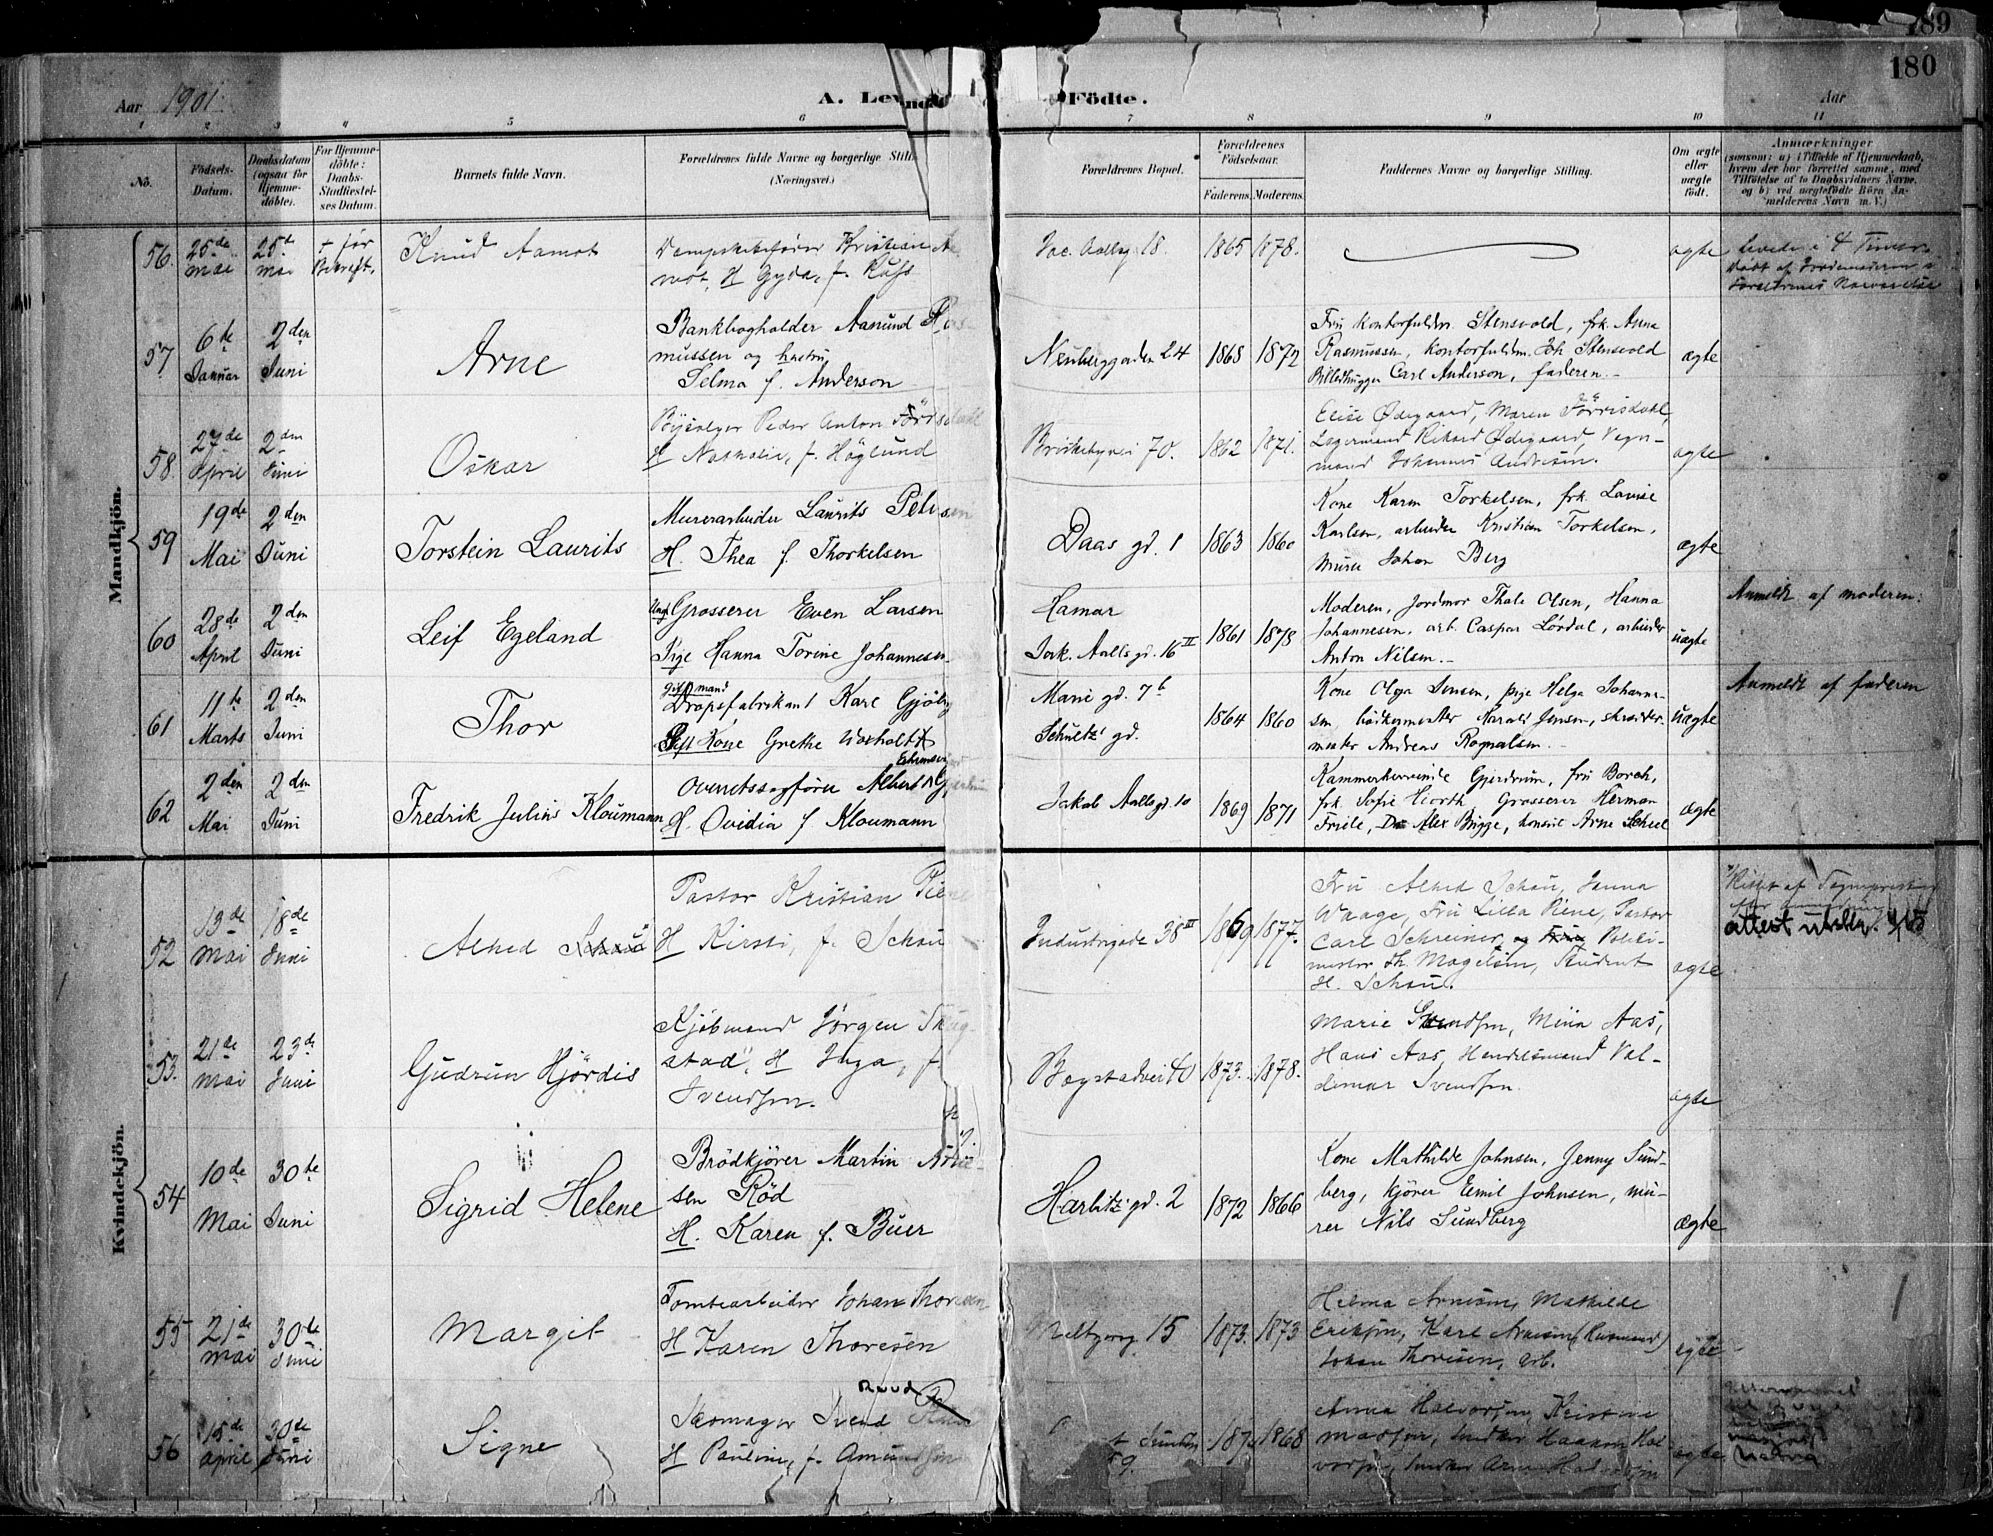 189
180
Aar 1901.
A. Levende Födte.
Aar
1 2 3 4 5 6 7 8 9 10 11
No.
Födsels-Datum.
Daabsdatum (ogsaa for Hjemme-döbte).
For Hjemme-döbte: Daabs-Stadfæstel-ses Datum.
Barnets fulde Navn.
Forældrenes fulde Navne og borgerlige Stilling (Næringsvei.)
Forældrenes Bopæl.
Forældrenes Födselsaar.
Faderens. Moderens.
Faddernes Navne og borgerlige Stilling.
Om ægte eller uægte födt.
Anmærkninger
(saasom: a) i Tilfælde af Hjemmedaab, hvem der har forrettet samme, med Tilföielse af to Daabsvidners Navne, og b) ved uægtefödte Börn Anmelderens Navn m. V.)
Mandkjön.
56. 25de mai 25de mai + før Bekræft.
Knud Aamot
Kristian Aamot, H Gyda, f.
Jac. Aallsg 18. 1865 1878.
ægte
levede i 4 Timer.
57 6te Januar 2den Juni
Arne
Bankbogholder Aamund Rasmussen og hustru
Selma f. Anderson
Neuberggaden 24 1868 1872
Fru kontorfuldm. Stensvold, frk. Anna
Rasmussen, kontorfuldm. Joh Stensvold
Billedhugger Carl Anderson, faderen.
ægte
58. 27de April 2den Juni
Oskar
Peder Anton
H Nathalie, f. Höglund
Briskebyvei 70. 1862 1871.
Elise Ødegaard, Maren
Lagermand Rikard Ødegaard, Vognmand Johannes Andresen.
ægte
59 19de Mai 2den Juni
Torstein Laurits
Murerarbeider Laurits Petersen
H. Thea f. Thorkelsen
Daas gd. 1 1863 1860
Kone Karen Torkelsen, frk. Lovise
Karlsen, arbeider Kristian Torkelsen,
murer Johan Berg
ægte
60 28de April 2den Juni
Leif Egeland
Ungk Grosserer Even Larsen
Pige Hanna Torine Johannesen
Hamar
Jak. Aalls gd. 16 II 1861 1878
Moderen, Jordmor Thale Olsen, Hanna
Johannesen, arb. Caspar Lørdal, arbeider
Anton Nilsen.
uægte
Anmeldt af moderen.
61 11te Marts 2den Juni
Thor
gift mand
Dropsfabrikant Karl
Kone Grethe
Marie gd. 7b
Schultz' gd. 1864 1860
Kone Olga Jensen, pige Helga Johannesen, bødkermester Harald Jensen, skræddermester Andreas Rognalsen.
uægte
Anmeldt af faderen
62 2den Mai 2den Juni
Fredrik Julius Kloumann
Overretssagfører Albert Gjerdrum
H. Ovidia f Kloumann
Jakob Aalls gd. 10 1869 1871
Kammerherreinde Gjerdrum, fru Borch,
frk. Sofie Hiorth, Grosserer Herman
Friele, Dr Alex Brigge, konsul Arne Scheel
ægte
Kvindekjön.
52 13de mai 18de Juni
Alhed Schou
Pastor Kristian Piene
H Kirsti, f. Schou
Industrigade 38 III 1869 1877.
Fru Alhed Schou, Janna
Waage, Fru Lilla Piene, Pastor
Carl Schreiner, og Politimester Th. Magelsen, Student
H. Schou.
ægte
attest utstedt
53. 21de mai 23de Juni
Gudrun Hjördis
Kjøbmand Jørgen
H Inga, f.
Svendsen.
Bogstadvei 40 1873. 1878.
Marie Svendsen, Mina Aas,
Hans Aas, Handelsmand Valdemar Svendsen.
ægte
54 10de Mai 30te Juni
Sigrid Helene
Brödkjører Martin
sen Röd
H. Karen f. Buer
Harbitz gd. 2 1872 1866
Kone Mathilde Johnsen, Jenny Sundberg, kjører Emil Johnsen, murer Nils Sundberg
ægte
55 21de mai 30te Juni
Margit
Tomtearbeider Johan Thoresen
H Karen Thoresen
Meltzersg 15 1873. 1873
Helma Arnesen, Mathilde
Eriksen, Karl Arnesen
Johan Thoresen, arb.
ægte
56 15de April 30te Juni
Signe
Ruud
Skomager Svend
H Pauline, f. Amundsen
9. 1868
Anna Halvorsen, Kristine
Madsen, Snedker Haakon Halvorsen, Snedker
ægte